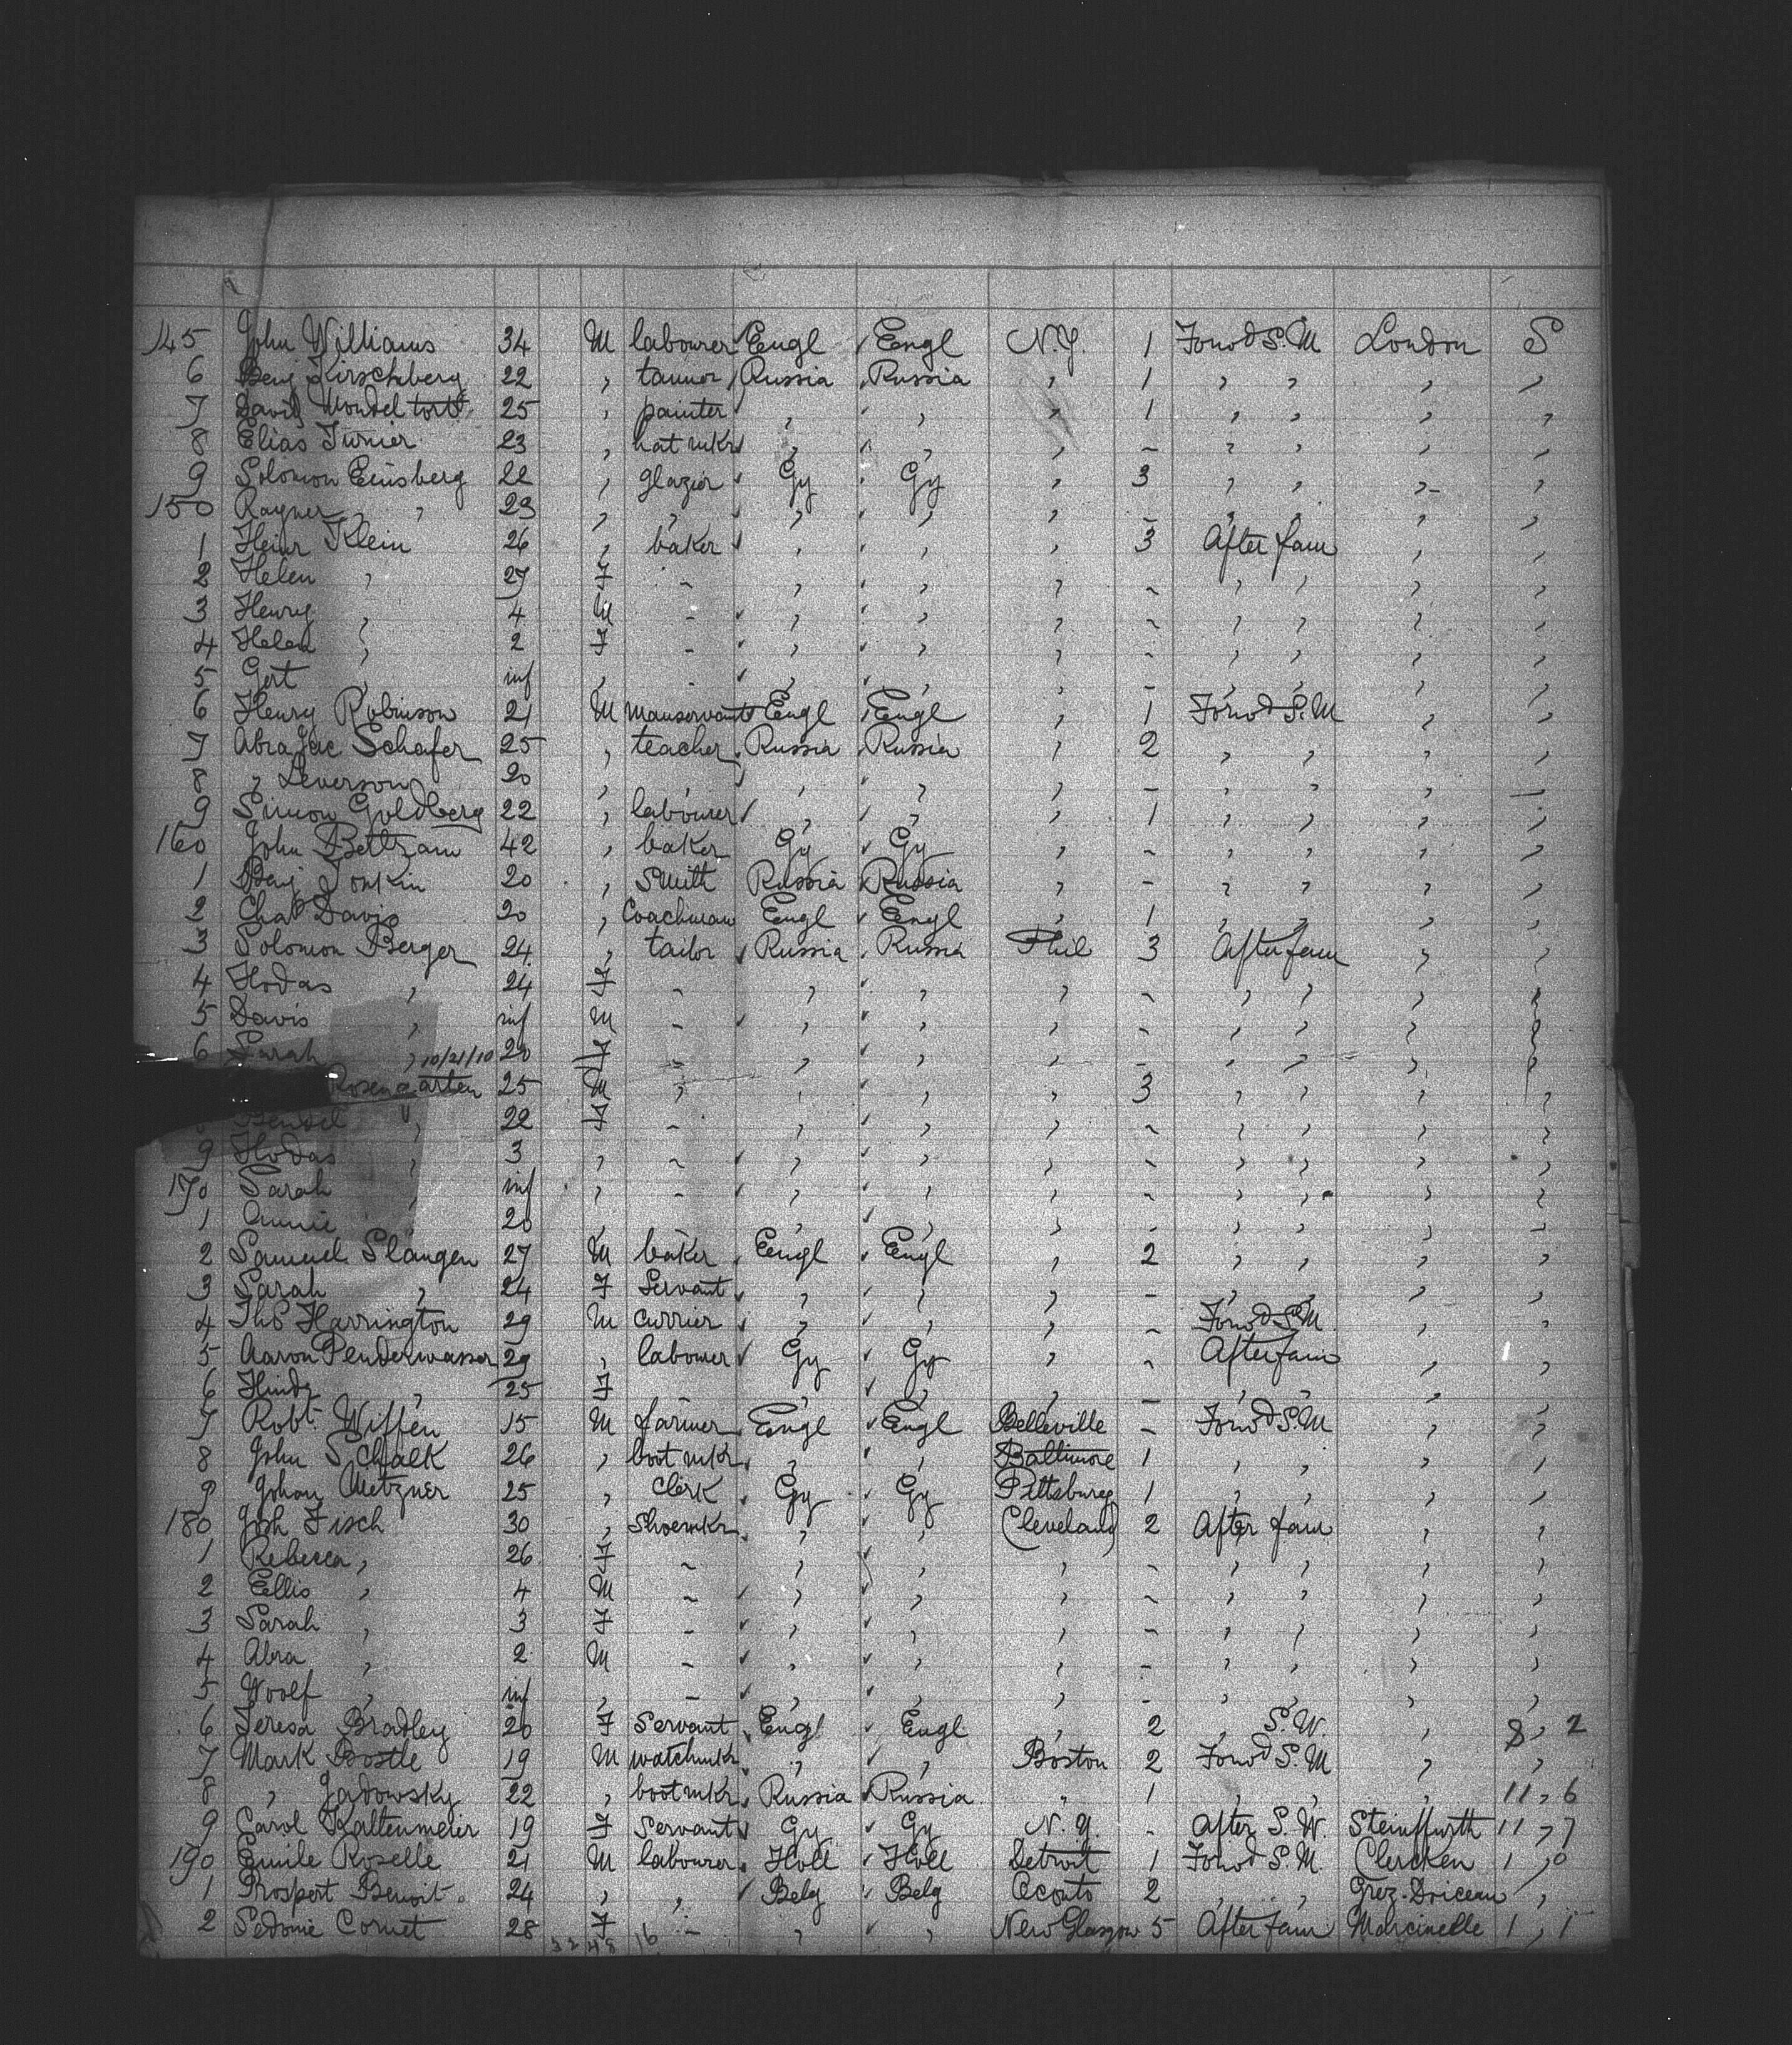 145 John Williams 34 M labourer Engl Engl N.Y. 1 Forwd S.M London S
6 Benj Kirschberg 22 , tanner Russia Russia , 1 , , , ,
7 David Mondel tort 25 , painter , , , 1 , , , ,
8 Elias Turner 23 , hat mkr , , , - , , , ,
9 Solomon Einsberg 22 , glazier Gy Gy , 3 , , , ,
150 Rayner , 23 , , , , , - , , , ,
1 Heinr Klein 26 , baker , , , 3 After fam , ,
2 Helen , 27 F - , , , - , , , ,
3 Henry , 4 M - , , , - , , , ,
4 Helen , 2 F - , , , - , , , ,
5 Gert , inf , - , , , - , , , ,
6 Henry Robinson 21 M manservant Engl Engl , 1 Forwd S.M , ,
7 Abra Jac Schafer 25 , teacher Russia Russia , 2 , , , ,
8 , Leverson 20 , , , , , - , , , ,
9 Simon Goldberg 22 , labourer , , , 1 , , , ,
160 John Beltram 42 , baker Gy Gy , - , , , ,
1 Benj Joskin 20 , Smith Russia Russia , - , , , ,
2 Chas Davis 20 , Coachman Engl Engl , 1 , , , ,
3 Solomon Berger 24 , tailor Russia Russia Phil 3 After fam , ,
4 Hodas , 24 F - , , , - , , , ,
5 Davis , inf M - , , , - , , , ,
6 Sarah , 10/21/10 20 F - , , , - , , , ,
Rosengarten 25 M , , , , 3 , , , ,
Bendel , 22 F - , , , - , , , ,
9 Hodas , 3 , - , , , - , , , ,
170 Sarah , inf , - , , , - , , , ,
1 Annie , 20 , , , , - , , , ,
2 Samuel Slangen 27 M baker Engl Engl , 2 , , , ,
3 Sarah , 24 F Servant , , , - , , , ,
4 Ths Harrington 29 M currier , , , - Forwd S.M , ,
5 Aaron Penderwasser 29 , labourer Gy Gy , - After fam , ,
6 Hinda , 25 F - , , , - , , , ,
7 Robt Wiffen 15 M farmer Engl Engl Belleville - Forwd S.M , ,
8 John S Chalk 26 , boot mkr , , Baltimore 1 , , , ,
9 Johan Metzner 25 , Clerk Gy Gy Pittsburg 1 , , , ,
180 Josh Fisch 30 , Shoemkr , , Cleveland 2 After fam , ,
1 Rebecca , 26 F - , , , - , , , ,
2 Ellis , 4 M - , , , - , , , ,
3 Sarah , 3 F - , , , - , , , ,
4 Abra , 2 M - , , , - , , , ,
5 Woolf , inf , - , , , - , , , ,
6 Teresa Bradley 20 F Servant Engl Engl , 2 , S.W. , 8, 2
7 Mark Postle 19 M watchmkr , , Boston 2 Forwd S.M , ,
8 , Jadowsky 22 , boot mkr Russia Russia , 1 , , , 11, 6
9 Carol Kaltenmeier 19 F Servant Gy Gy N.Y. - After S.W. Steinffurth 11, 7
190 Emile Roselle 21 M labourer Holl Holl Detroit 1 Forwd S.M. Clercken 1, 0
1 Prospert Benoit 24 , , Belg Belg Oconto 2 , , Grez-Doiceau , ,
2 Sedonie Cornet 28 F - , , New Glasgow 5 After fam Marcinelle 1, 1